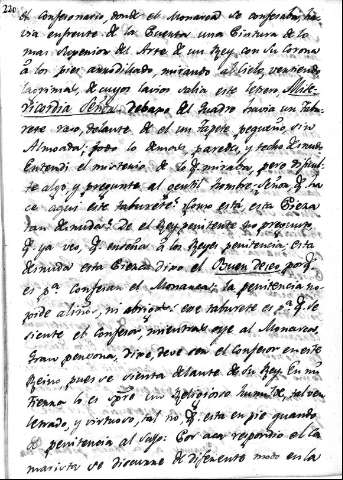 220
el Confesonario, donde el Monarca se confesaba, ha-
via enfrente de la Puerta una Pintura de lo
mas Superior del Arte de un Rey con su Corona
a los pies arrodillado, mirando al Cielo, vertiendo
lacrimas, de cuyos lavios salia este letrero, Mise-
ricordia Señor. debaxo del Quadro havia un Tabu-
rete raso, delante de el un Tapete pequeño, sin
Almoada; todo lo demas, paredes, y techo desnudo
Entendi el misterio de lo q. miraba, pero dificul-
té algo, y pregunté al gentil hombre. Señor q. ha-
ce aqui este taburete? Como está esta Pieza
tan desnuda? De el Rey penitente no pregunto
q. ya veo, q. enseña a los Reyes penitencia: esta
desnuda esta Pieza dixo el Buen deseo, porq.
es pa. Confesar el Monarca; la penitencia no
pide aliños, ni abrigos: ese taburete es pa. q. se
siente el Confesor, mientras oye al Monarca.
Gran persona, dixe, deve ser el Confesor en este
Reino, pues se sienta delante de su Rey. En mi
tierra lo es spre. un Religioso humilde, tal vez
letrado, y virtuoso, tal no, q. esta en pie quando
de penitencia al suyo: Por acá respondio el Ca-
marista se discurre de diferente modo en la